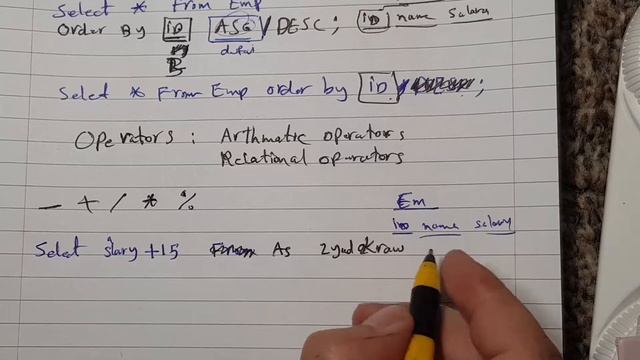 Select * From Emp
Order By ID ASC / DESC; ID name Salary
Select * From Emp order by ID ;
Operators : Arthmatic operators
Relational operators
- + / * %
Em
ID name salary
Select slary +15 As